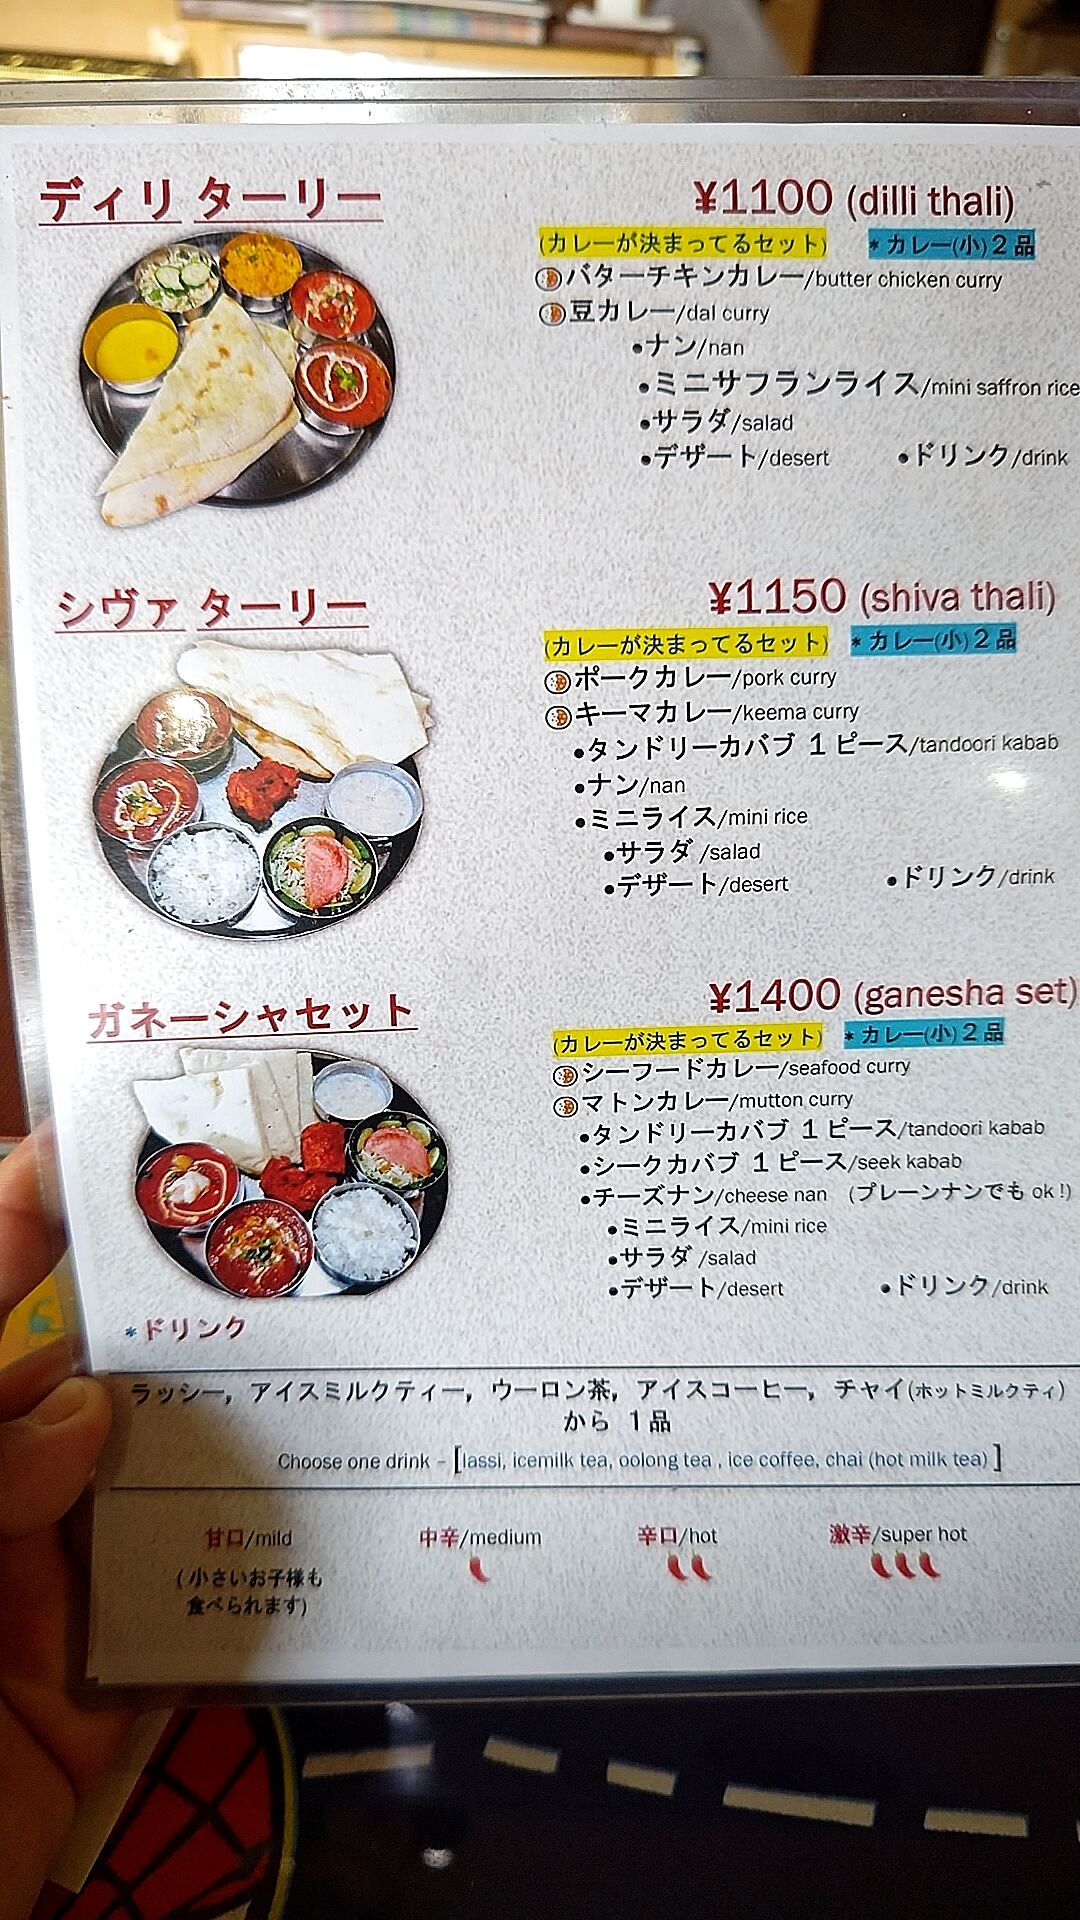 ディリ ターリー ¥1100 (dilli thali)
(カレーが決まってるセット) * カレー(小)2品
バターチキンカレー/butter chicken curry
豆カレー/dal curry
•ナン/nan
•ミニサフランライス/mini saffron rice
•サラダ/salad
•デザート/desert •ドリンク/drink
シヴァ ターリー ¥1150 (shiva thali)
(カレーが決まってるセット) * カレー(小)2品
ポークカレー/pork curry
キーマカレー/keema curry
•タンドリーカバブ 1ピース/tandoori kabab
•ナン/nan
•ミニライス/mini rice
•サラダ /salad
•デザート/desert •ドリンク/drink
ガネーシャセット ¥1400 (ganesha set)
(カレーが決まってるセット) * カレー(小)2品
シーフードカレー/seafood curry
マトンカレー/mutton curry
•タンドリーカバブ 1ピース/tandoori kabab
•シークカバブ 1ピース/seek kabab
•チーズナン/cheese nan (プレーンナンでも ok!)
•ミニライス/mini rice
•サラダ /salad
•デザート/desert •ドリンク/drink
*ドリンク
ラッシー, アイスミルクティー, ウーロン茶, アイスコーヒー, チャイ(ホットミルクティ)
から 1品
Choose one drink – [lassi, icemilk tea, oolong tea , ice coffee, chai (hot milk tea) ]
甘口/mild 中辛/medium 辛口/hot 激辛/super hot
(小さいお子様も
食べられます)